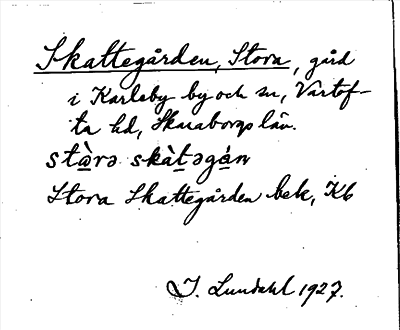 Skattegården, Stora, gård
i Karleby by och sn, Vartof-
ta hd, Skaraborgs län.
stàrə skàtəgán
Stora Skattegården bek, Kb
J. Lundahl 1927.